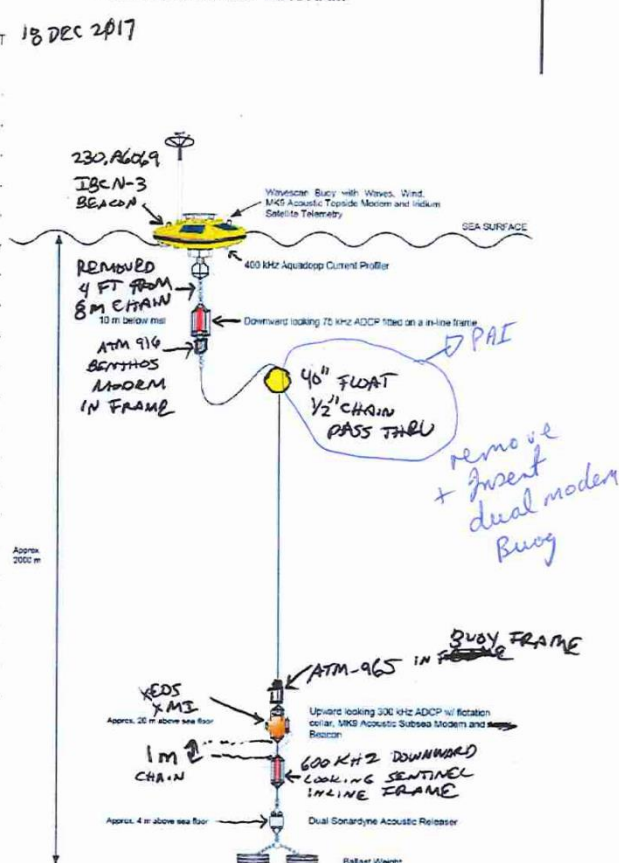 18 DEC 2017
230, A6069
IBCN-3
BEACON
Wavescan Buoy with Waves, Wind,
MK9 Acoustic Topside Modem and Iridium
Satellite Telemetry
SEA SURFACE
400 kHz Aquadopp Current Profiler
REMOVED
4 FT FROM
8M CHAIN
10 m below msl
Downward looking 75 kHz ADCP fitted on a in-line frame
ATM 916
BENTHOS
MODEM
IN FRAME
PAI
40" FLOAT
1/2" CHAIN
PASS THRU
remove
+ Insert
dual modem
Buoy
Approx.
2000 m
ATM-965 IN BUOY FRAME
XEOS
XMI
Approx. 20 m above sea floor
Upward looking 300 kHz ADCP w/ flotation
collar, MK9 Acoustic Subsea Modem and
Beacon
1m
CHAIN
600 KHZ DOWNWARD
LOOKING SENTINEL
INLINE FRAME
Approx. 4 m above sea floor
Dual Sonardyne Acoustic Releaser
Ballast Weight